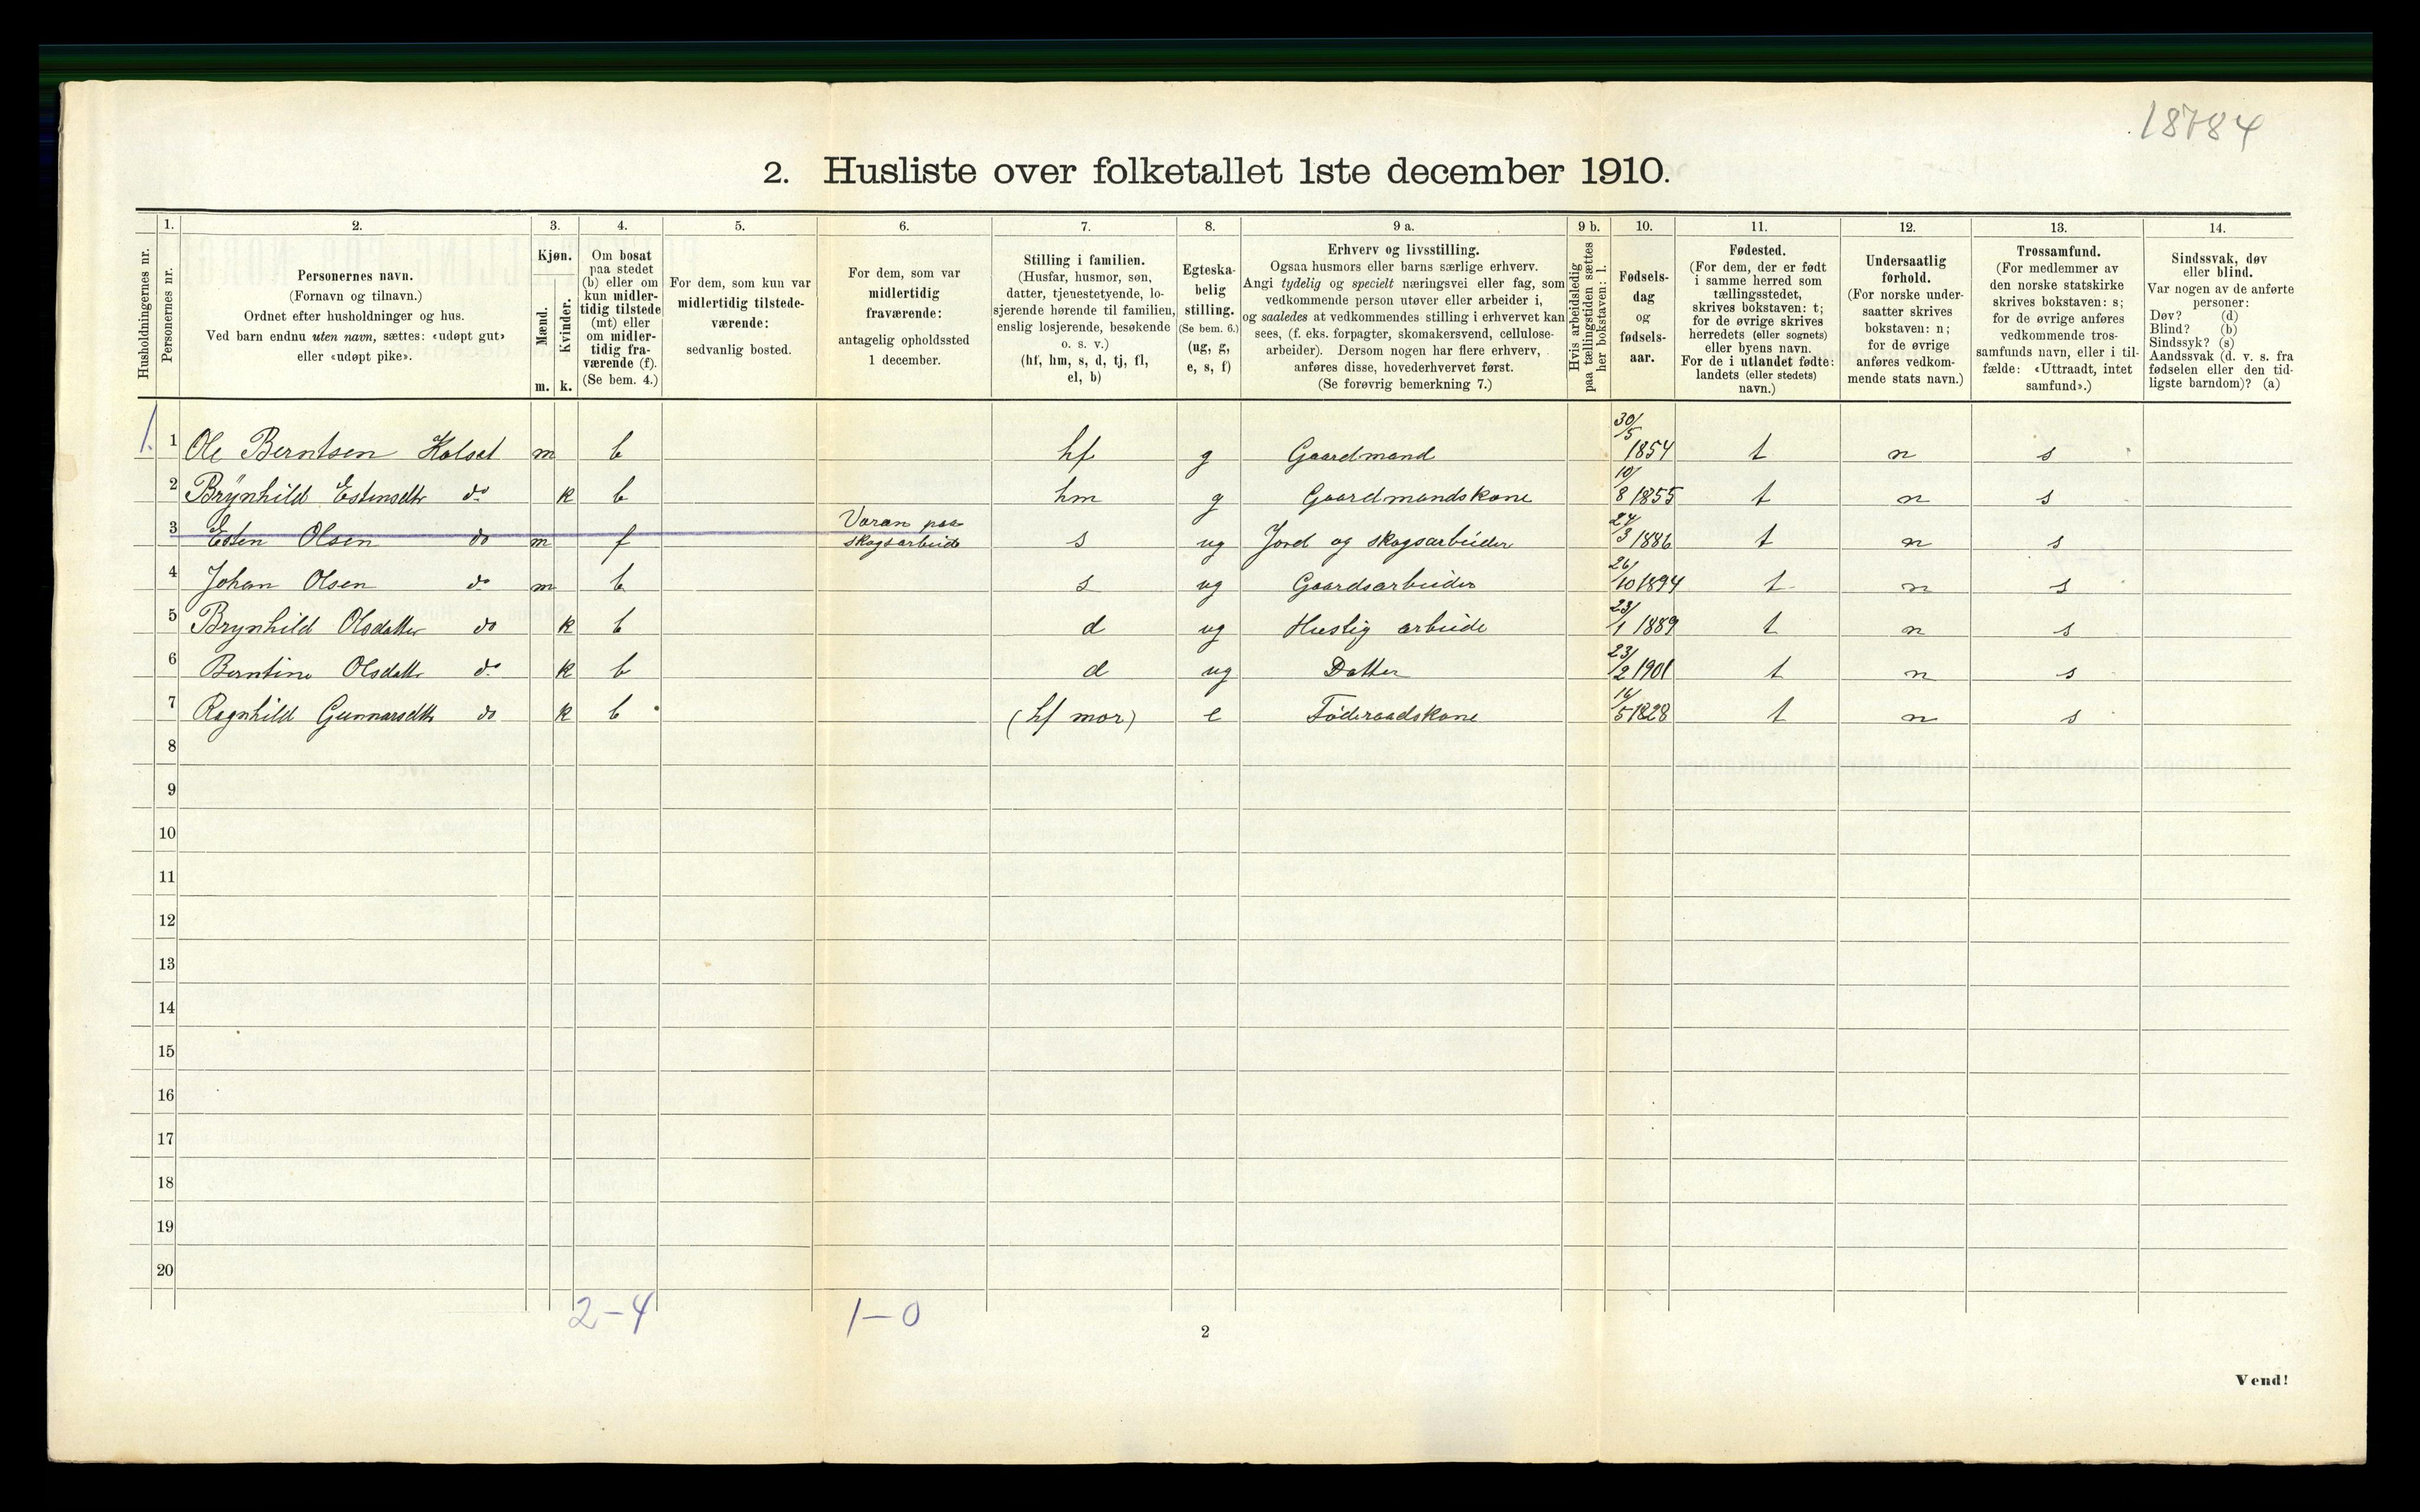 18784
2. Husliste over folketallet 1ste december 1910.
Husholdningernes nr.
1.
Personernes nr.
2.
Personernes navn.
(Fornavn og tilnavn.)
Ordnet efter husholdninger og hus.
Ved barn endnu uten navn, sættes: «udøpt gut»
eller «udøpt pike».
3.
Kjøn.
Mænd.
Kvinder.
m. k.
4.
Om bosat
paa stedet
(b) eller om
kun midler-
tidig tilstede
(mt) eller
om midler-
tidig fra-
værende (f).
(Se bem. 4.)
5.
For dem, som kun var
midlertidig tilstede-
værende:
sedvanlig bosted.
6.
For dem, som var
midlertidig
fraværende:
antagelig opholdssted
1 december.
7.
Stilling i familien.
(Husfar, husmor, søn,
datter, tjenestetyende, lo-
sjerende hørende til familien,
enslig losjerende, besøkende
o. s. v.)
(hf, hm, s, d, tj, fl,
el, b)
8.
Egteska-
belig
stilling.
(Se bem. 6.)
(ug, g,
e, s, f)
9 a.
Erhverv og livsstilling.
Ogsaa husmors eller barns særlige erhverv.
Angi tydelig og specielt næringsvei eller fag, som
vedkommende person utøver eller arbeider i,
og saaledes at vedkommendes stilling i erhvervet kan
sees, (f. eks. forpagter, skomakersvend, cellulose-
arbeider). Dersom nogen har flere erhverv,
anføres disse, hovederhvervet først.
(Se forøvrig bemerkning 7.)
9 b.
Hvis arbeidsledig
paa tællingstiden sættes
her bokstaven: l.
10.
Fødsels-
dag
og
fødsels-
aar.
11.
Fødested.
(For dem, der er født
i samme herred som
tællingsstedet,
skrives bokstaven: t;
for de øvrige skrives
herredets (eller sognets)
eller byens navn.
For de i utlandet fødte:
landets (eller stedets)
navn.)
12.
Undersaatlig
forhold.
(For norske under-
saatter skrives
bokstaven: n;
for de øvrige
anføres vedkom-
mende stats navn.)
13.
Trossamfund.
(For medlemmer av
den norske statskirke
skrives bokstaven: s;
for de øvrige anføres
vedkommende tros-
samfunds navn, eller i til-
fælde: «Uttraadt, intet
samfund».)
14.
Sindssvak, døv
eller blind.
Var nogen av de anførte
personer:
Døv? (d)
Blind? (b)
Sindssyk? (s)
Aandssvak (d. v. s. fra
fødselen eller den tid-
ligste barndom)? (a)
1. 1 Ole Berntsen Kolset m b hf g Gaardmand 30/5 1854 t n s
2 Brynhild Estensdtr do k b hm g Gaardmandskone 10/8 1855 t n s
3 Esten Olsen do m f Voran paa skogsarbeide s ug Jord og skogsarbeider 24/3 1886 t n s
4 Johan Olsen do m b s ug Gaardsarbeider 26/10 1894 t n s
5 Brynhild Olsdatter do k b d ug Huslig arbeide 23/1 1889 t n s
6 Berntine Olsdattr do k b d ug Datter 23/2 1901 t n s
7 Ragnhild Gunnarsdtr do k b (hf mor) e Föderaadskone 16/5 1828 t n s
8
9
10
11
12
13
14
15
16
17
18
19
20
2-4 1-0
2
Vend!